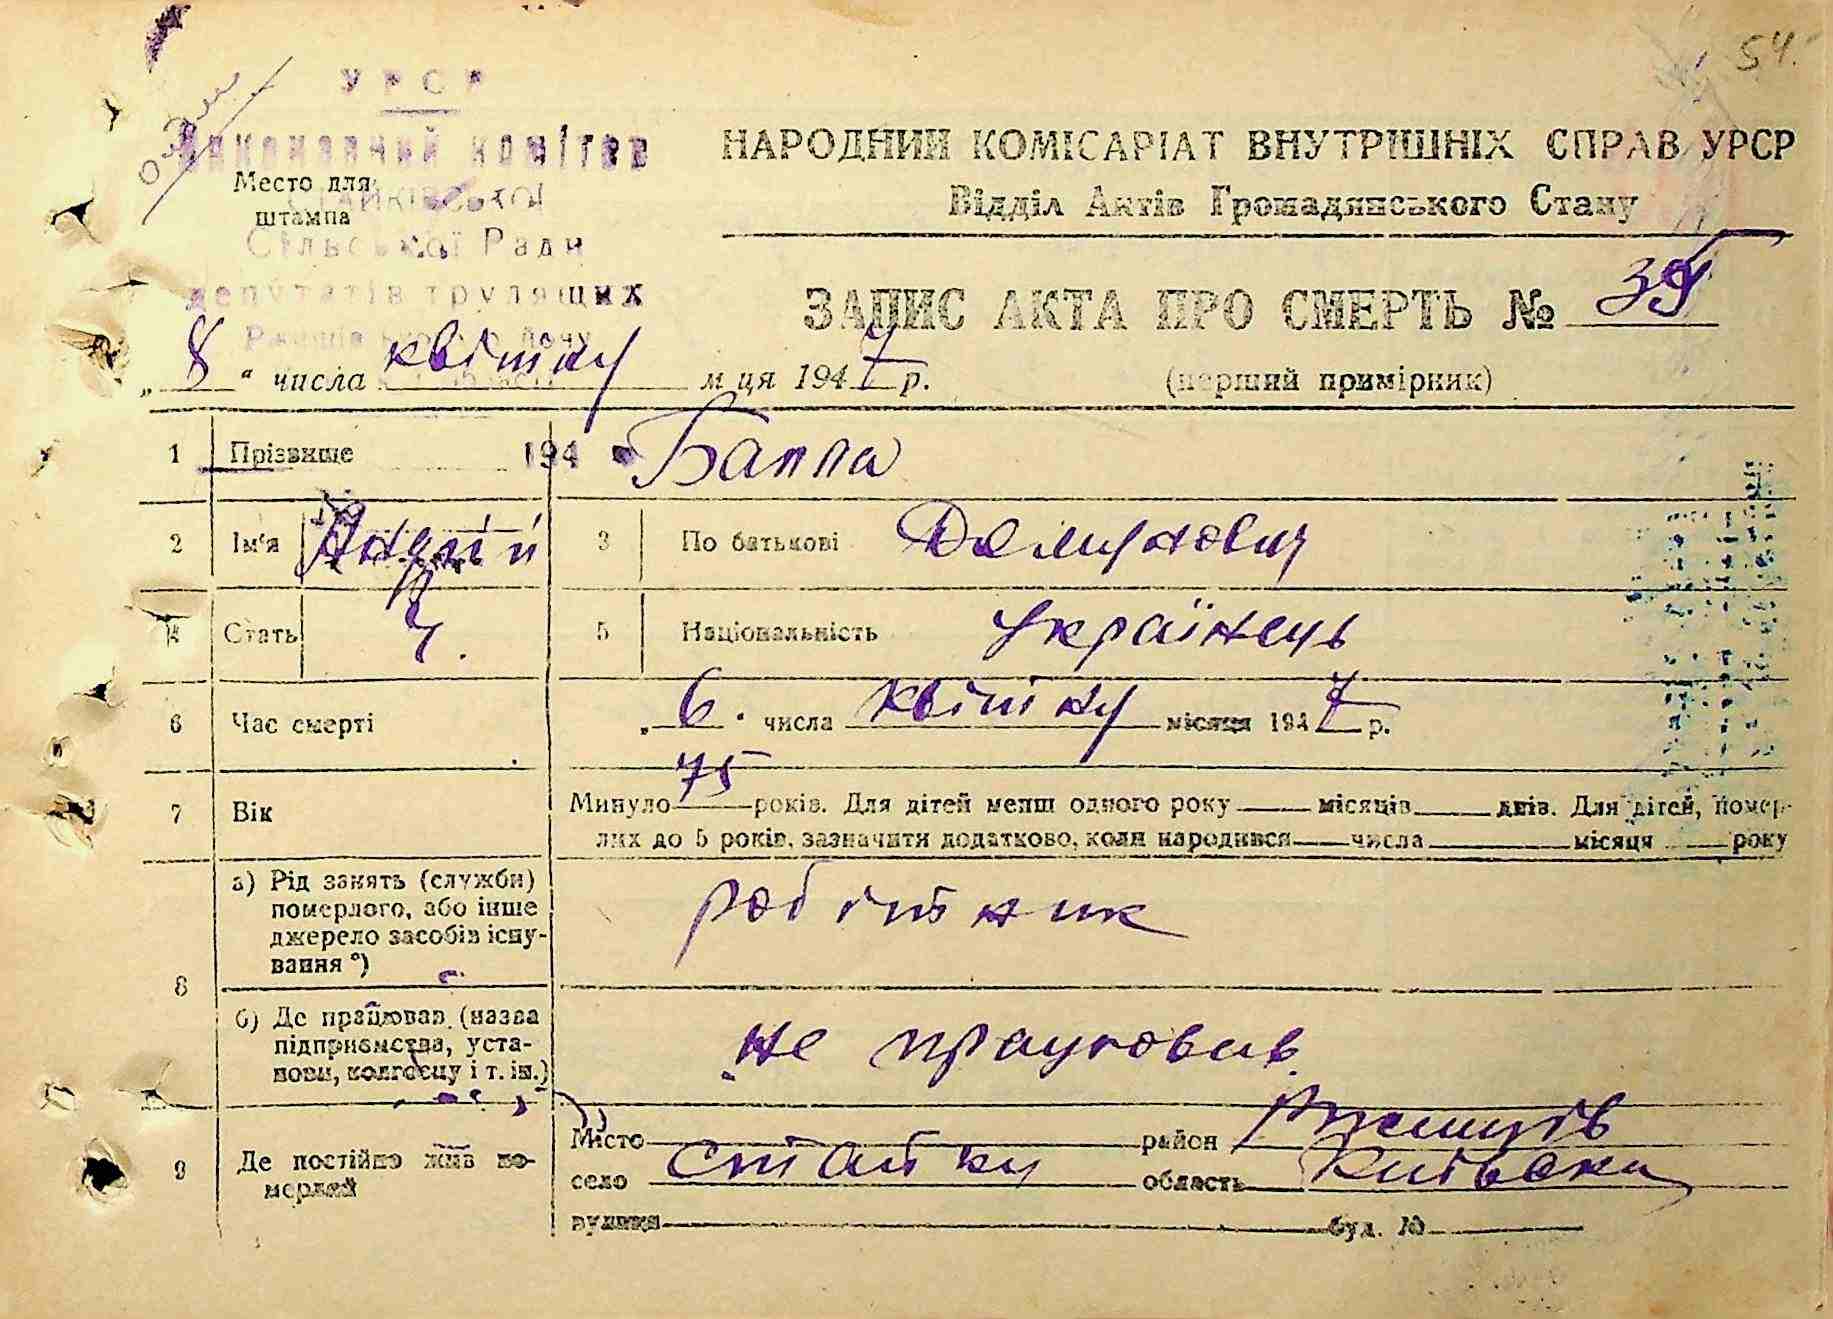 54.
УРСР
Виконавчий комітет
Место для
штампа
СТАЙКІВСЬКОЇ
Сільської Ради
депутатів трудящих
НАРОДНИЙ КОМІСАРІАТ ВНУТРІШНІХ СПРАВ УРСР
Відділ Актів Громадянського Стану
ЗАПИС АКТА ПРО СМЕРТЬ № 39
„8“ числа квітня м ця 1947 р.
(перший примірник)
1 Прізвище 194 Баппа
2 Ім'я Андрій 3 По батькові Демидович
4 Стать Ч. 5 Національність Українець
6 Час смерті „6“ числа квітня місяця 1947 р.
7 Вік Минуло 75 років. Для дітей менш одного року місяців днів. Для дітей, помер-
лих до 5 років, зазначити додатково, коли народився числа місяця року
8 а) Рід занять (служби)
померлого, або інше
джерело засобів існу-
вання °)
робітник
б) Де працював (назва
підприємства, уста-
нови, колгоспу і т. ін.)
не працював.
9 Де постійно жив по-
мерлий
Місто район Ржищів
село Стайки область Київська
вулиця буд. №